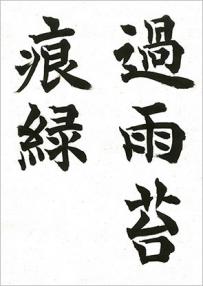 過雨苔
痕緑